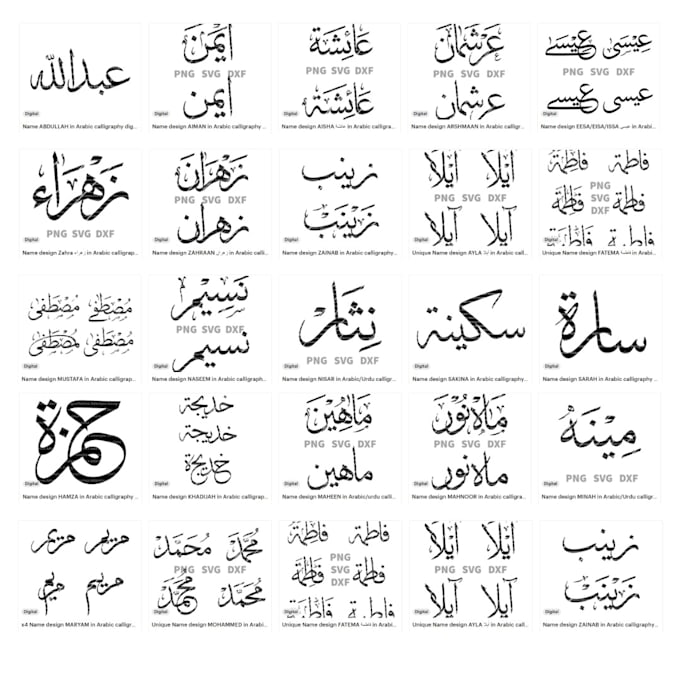 عبدالله
أَيمَن
PNG SVG DXF
أيمن
عَائِشَة
PNG SVG DXF
عَائِشَة
عَرْشمَان
PNG SVG DXF
عرشمان
عيسے عِيسَى
PNG SVG DXF
عيسے عيسى
Digital
Digital
Digital
Digital
Digital
Name ABDULLAH in Arabic calligraphy dig...
Name design AIMAN in Arabic calligraphy ...
Name design AISHA عائشة in Arabic calligra...
Name design ARSHMAAN in Arabic calligr...
Name design EESA/EISA/ISSA عيسى in Arabi...
زَهْرَاء
PNG SVG DXF
زَهْرَان
PNG SVG DXF
زهران
زينب
زَيْنَب
آيْلَا آيْلَا
PNG SVG DXF
آيلا آيلا
فاطمة فاطمة
PNG
SVG
DXF
فاطمة فاطمة
فاطمة فاطمة
Digital
Digital
Digital
Digital
Digital
Name design Zahra زهراء in Arabic calligrap...
Name design ZAHRAAN زهران in Arabic calli...
Name design ZAINAB in Arabic calligraphy...
Unique Name design AYLA آيلا in Arabic cal...
Unique Name design FATEMA فاطمة in Arabi...
مُصْطَفىٰ مُصْطَفےٰ
مُصْطَفىٰ مُصْطَفىٰ
نَسِيْم
PNG SVG DXF
نسيم
نِثَار
PNG SVG DXF
سكينة
سارة
Digital
Digital
Digital
Digital
Digital
Name design MUSTAFA in Arabic calligrap...
Name design NASEEM in Arabic calligraphy...
Name design NISAR in Arabic/Urdu calligr...
Name design SAKINA in Arabic calligraphy ...
Name design SARAH in Arabic calligraphy ...
حمزة
خديجة
خديجة
خديجة
مَاهِيْن
PNG SVG DXF
ماهين
مَاہْنُوْر
PNG SVG DXF
ماہنور
مِينَه
PNG SVG DXF
Digital
Digital
Digital
Digital
Digital
Name design HAMZA in Arabic calligraphy ...
Name design KHADIJAH in Arabic calligrap...
Name design MAHEEN in Arabic/urdu calli...
Name design MAHNOOR in Arabic calligra...
Name design MINAH in Arabic/Urdu calligr...
مريم مريم
مريم مريم
مُحَمَّد مُحَمَّد
PNG SVG DXF
مُحَمَّد مُحَمَّد
فاطمة فاطمة
PNG
SVG
DXF
فاطمة فاطمة
فاطمة فاطمة
آيْلَا آيْلَا
PNG SVG DXF
آيلا آيلا
زينب
زَيْنَب
Digital
Digital
Digital
Digital
Digital
x4 Name design MARYAM in Arabic calligr...
Unique Name design MOHAMMED in Arabi...
Unique Name design FATEMA فاطمة in Arabi...
Unique Name design AYLA آيلا in Arabic cal...
Name design ZAINAB in Arabic calligraphy...